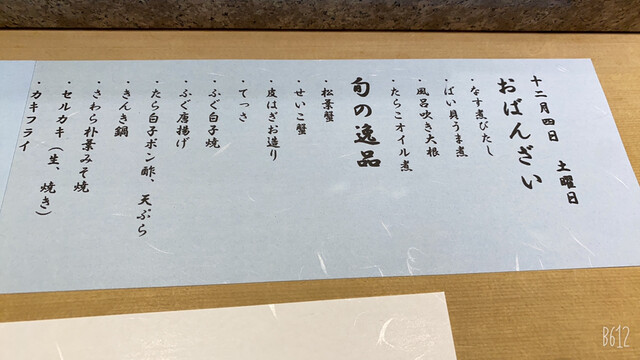 十二月四日　土曜日
おばんざい
・なす煮びたし
・ばい貝うま煮
・風呂吹き大根
・たらこオイル煮
旬の逸品
・松葉蟹
・せいこ蟹
・皮はぎお造り
・てっさ
・ふぐ白子焼
・ふぐ唐揚げ
・たら白子ポン酢、天ぷら
・きんき鍋
・さわら朴葉みそ焼
・セルカキ（生、焼き）
・カキフライ
B612